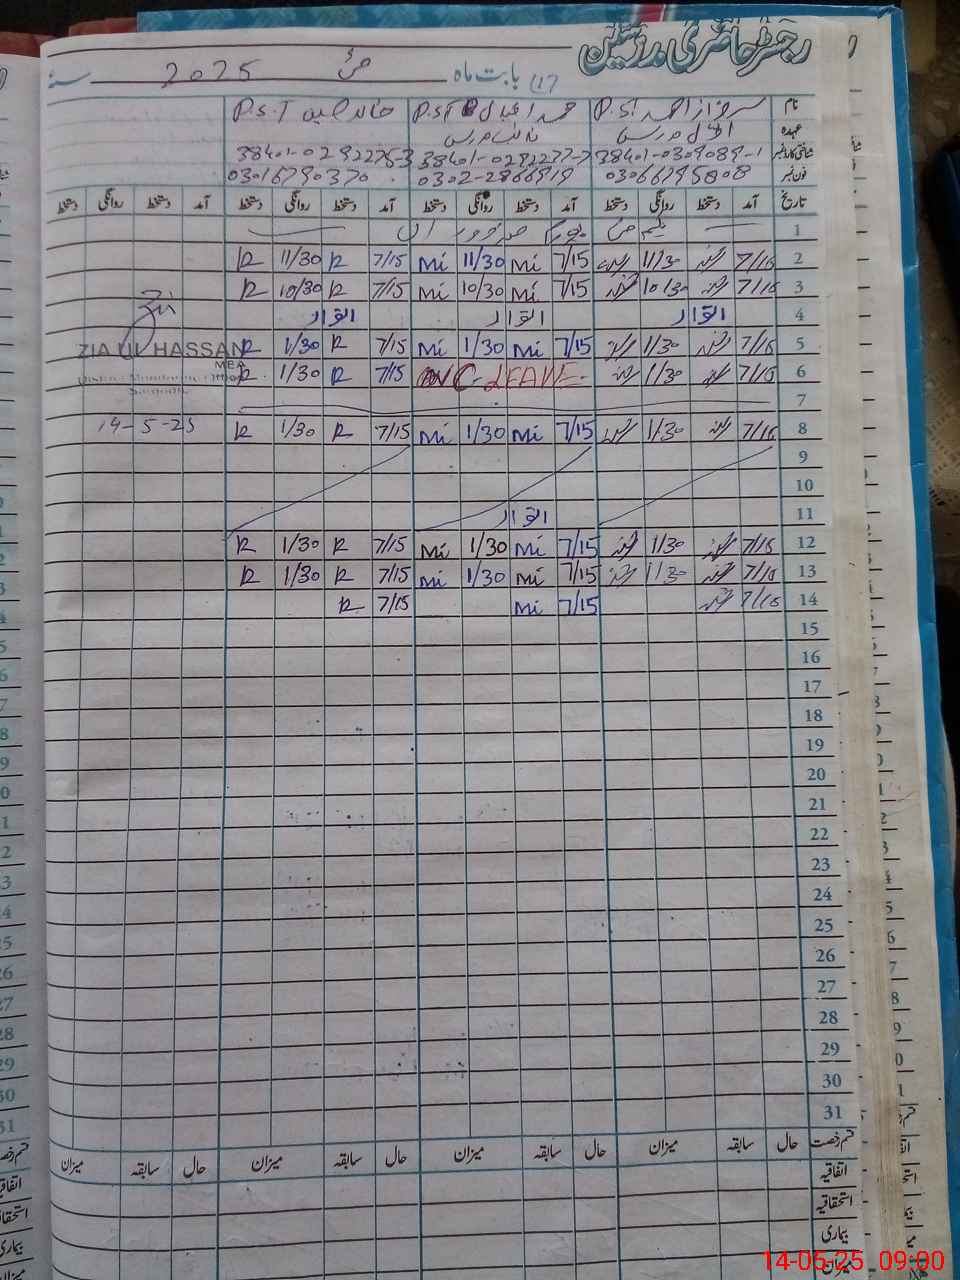 رجسٹر حاضری مدرسین
(17) بابت ماہ مئی 2025 سنہ
نام سرفراز احمد P.ST محمد اقبال P.ST خالد P.S.T
عہدہ
شناختی کارڈ نمبر 38401-0309089-1 38401-0292277-7 38401-0292275-3
فون نمبر 03066795808 0302-2866919 03016790370
تاریخ آمد دستخط روانگی دستخط آمد دستخط روانگی دستخط آمد دستخط روانگی دستخط آمد دستخط روانگی دستخط
1 یکم مئی یوم مزدوراں
2 7/15 11/30 7/15 Mi 11/30 Mi 7/15 R 11/30 R
3 7/15 10/30 7/15 Mi 10/30 Mi 7/15 R 10/30 R
4 اتوار اتوار اتوار
5 7/15 1/30 7/15 Mi 1/30 Mi 7/15 R 1/30 R
ZIA UL HASSAN
MEA
6 7/15 1/30 C-LEAVE 7/15 R 1/30 R
7
8 7/15 1/30 7/15 Mi 1/30 Mi 7/15 R 1/30 R 14-5-25
9
10
11 اتوار
12 7/15 1/30 7/15 Mi 1/30 Mi 7/15 R 1/30 R
13 7/15 1/30 7/15 Mi 1/30 Mi 7/15 R 1/30 R
14 7/15 7/15 Mi 7/15 R
15
16
17
18
19
20
21
22
23
24
25
26
27
28
29
30
31
قسم رخصت حال سابقہ میزان حال سابقہ میزان حال سابقہ میزان حال سابقہ میزان
اتفاقیہ
استحقاقیہ
بیماری
میزان
14-05-25 09:00